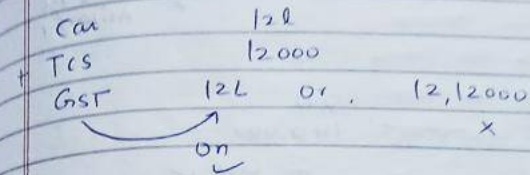 Car 12L
+ TCS 12000
GST 12L or. 12,12000
on ✓ ×